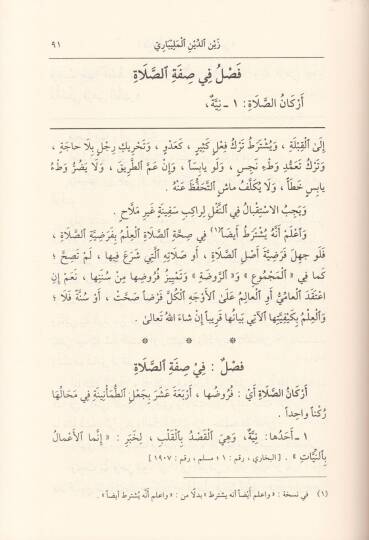 زَيْن ٱلدِّيْنِ ٱلْمَلِيْبَارِيّ ٩١
فَصْلٌ فِي صِفَةِ ٱلصَّلَاةِ
أَرْكَانُ الصَّلَاةِ: ١ ـ نِيَّةٌ،
إِلَىٰ ٱلْقِبْلَةِ ، وَيُشْتَرَطُ تَرْكُ فِعْلٍ كَثِيْرٍ ، كَعَدْوٍ ، وَتَحْرِيكِ رِجْلٍ بِلَا حَاجَةٍ ،
وَتَرْكُ تَعَمُّدِ وَطْءِ نَجِسٍ ، وَلَو يابِسَاً ، وَإِنْ عَمَّ الطَّرِيقَ ، وَلَا يَضُرُّ وَطْءُ
يابِسٍ خَطَأً ، وَلَا يُكَلَّفُ ماشٍ ٱلتَّحَفُّظَ عَنْهُ .
وَيَجِبُ الاسْتِقْبَالُ فِي ٱلنَّفْلِ لِراكِبِ سَفِينَةٍ غَيرِ مَلَّاحٍ .
وَٱعْلَمْ أَنَّهُ يُشْتَرَطُ أَيضَاً (١) فِي صِحَّةِ الصَّلَاةِ ٱلْعِلْمُ بِفَرْضِيَّةِ ٱلصَّلَاةِ ،
فَلَو جهِلَ فَرْضِيَّةَ أَصْلِ ٱلصَّلَاةِ ، أَو صَلَاتِهِ ٱلَّتِي شَرَعَ فِيها ، لَمْ تَصِحَّ ؛
كَمَا فِي « ٱلْمَجْمُوعِ » وَ« ٱلرَّوضَةِ » وَتَمْيِيزُ فُرُوضِهَا مِنْ سُنَنِهَا ، نَعَمْ إِنِ
ٱعْتَقَدَ ٱلْعامِّيُّ أَوِ ٱلْعَالِمُ عَلَىٰ الأَوْجَهِ ٱلْكُلَّ فَرْضاً صَحَّتْ ، أَوْ سُنَّةً فَلَا ؛
وَٱلْعِلْمُ بِكَيْفِيَّتِها الآتِي بَيَانُها قَرِيباً إِنْ شاءَ اللهُ تَعالَى .
* * *
فَصْلٌ : فِيْ صِفَةِ الصَّلَاةِ
أَرْكَانُ الصَّلَاةِ أَيْ : فُرُوضُها ، أَرْبَعَةَ عَشَرَ بِجَعْلِ ٱلطُّمَأْنِينَةِ فِي مَحَالِّهَا
رُكْناً وَاحِداً .
١ ـ أَحَدُهَا: نِيَّةٌ، وَهِيَ ٱلْقَصْدُ بِٱلْقَلْبِ ، لِخَبَرِ : « إِنَّما ٱلأَعْمَالُ
بِالنِّيَّاتِ » . [ البخاري ، رقم : ١ ؛ مسلم ، رقم : ١٩٠٧ ]
(١) في نسخة : « واعلم أيضاً أنه يشترط » بدلًا من : « واعلم أنَّه يُشترط أيضاً » .